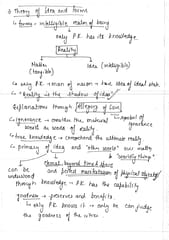 ② Theory of idea and forms
↳ forms → intelligible realm of being
only P.K has its knowledge.
Reality
Matter (tangible)
Idea (intelligible)
↳ only P.K → man of reason → true idea of ideal state.
↳ "Reality is the shadow of idea"
Explanations through Allegory of Cave
↳ ignorance → consider the material world as world of reality
↳ symbol of ignorance
↳ true knowledge → comprehend the ultimate reality
↳ primacy of idea and "other world" over reality
↳ "worldly things"
eternal, beyond time & space
and perfect manifestation of physical objects
can be understood through knowledge → P.K has the capability
↳ goodness → presence and benefits
↳ only P.K knows it → only he can judge the goodness of the whole